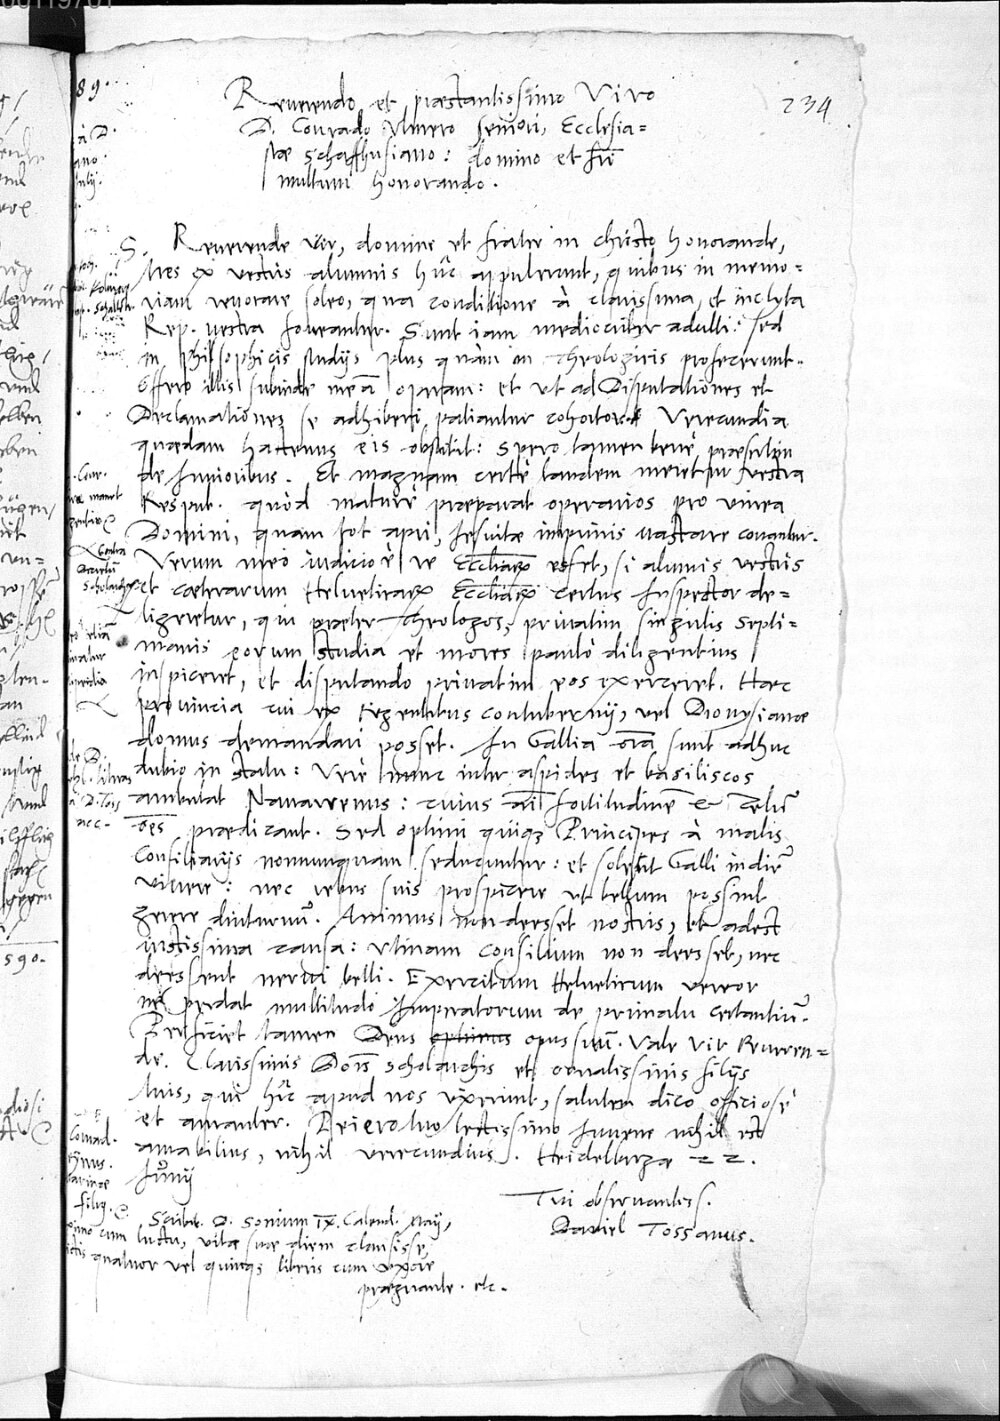 89.
234
Reuerendo et præstantissimo Viro
D. Conrado Vlmero seniori, Ecclesia=
stæ Schaffhusiano: domino et frī
multum honorando.
S. Reuerende vir, domine et frater in Christo honorande,
tres ex vestris alumnis hûc appulerunt, quibus in memo=
riam reuocare soleo, qua conditione à clarissima, et inclyta
Rep. vestra foueantur. Sunt iam mediocriter adulti: sed
in philosophicis studijs plus quàm in Theologicis profecerunt.
Offero illis subinde meā operam: et ut ad Disputationes et
Declamationes se adhiberi patiantur cohortor. Verecundia
quædam hactenus eis obstitit: Spero tamen benè, præsertim
de Junioribus. Et magnam certè laudem meretur vestra
Respub. quòd maturè præparat operarios pro vinea
Domini, quam tot apri, Jesuitæ inprimis vastare conantur.
Verum meo iudicio è re Eccliaꝝ esset, si alumnis vestris
et cæterarum Helueticaꝝ Eccliaꝝ certus Inspector de=
ligeretur, qui præter Theologos, priuatim singulis septi=
manis eorum studia et mores paulò diligentius
inspiceret, et disputando priuatim eos exerceret. Hæc
prouincia cui ex Regentibus contubernij, vel Dionysianæ
domus demandari posset. In Gallia oīa sunt adhuc
dubio in statu: Verè nunc inter aspides et basiliscos
ambulat Nauarrenus: cuius aī fortitudinē & zelū
oēs prædicant. Sed optimi quiqꝫ Principes à malis
Consiliarijs nonnunquam seducuntur: et solent Galli in diē
viuere: nec rebus suis prospicere ut bellum possint
gerere diuturnū. Animus non deesset nostris, et adest
iustissima causa: Vtinam Consilium non deesset, nec
deessent nerui belli. Exercitum Helueticum vereor
ne perdat multitudo Imperatorum de primatu certantiū.
Perficiet tamen Deus optimus opus suū. Vale Vir Reueren=
de. Clarissimis Dōis Scholarchis et ornatissimis filijs
tuis, qui hîc apud nos vixerunt, salutem dico officiosè
et amanter. tuo lectissimo Juuene nihil est
amabilius, nihil verecundius. Heidelbergæ 22.
Junij
Tui obseruantiss.
Daniel Tossanus.
Scribit D. Sonium IX. Calend. Maij,
cum luctu, vitæ suæ diem clausisse,
quatuor vel quinqꝫ liberis cum vxore
prægnante. etc.